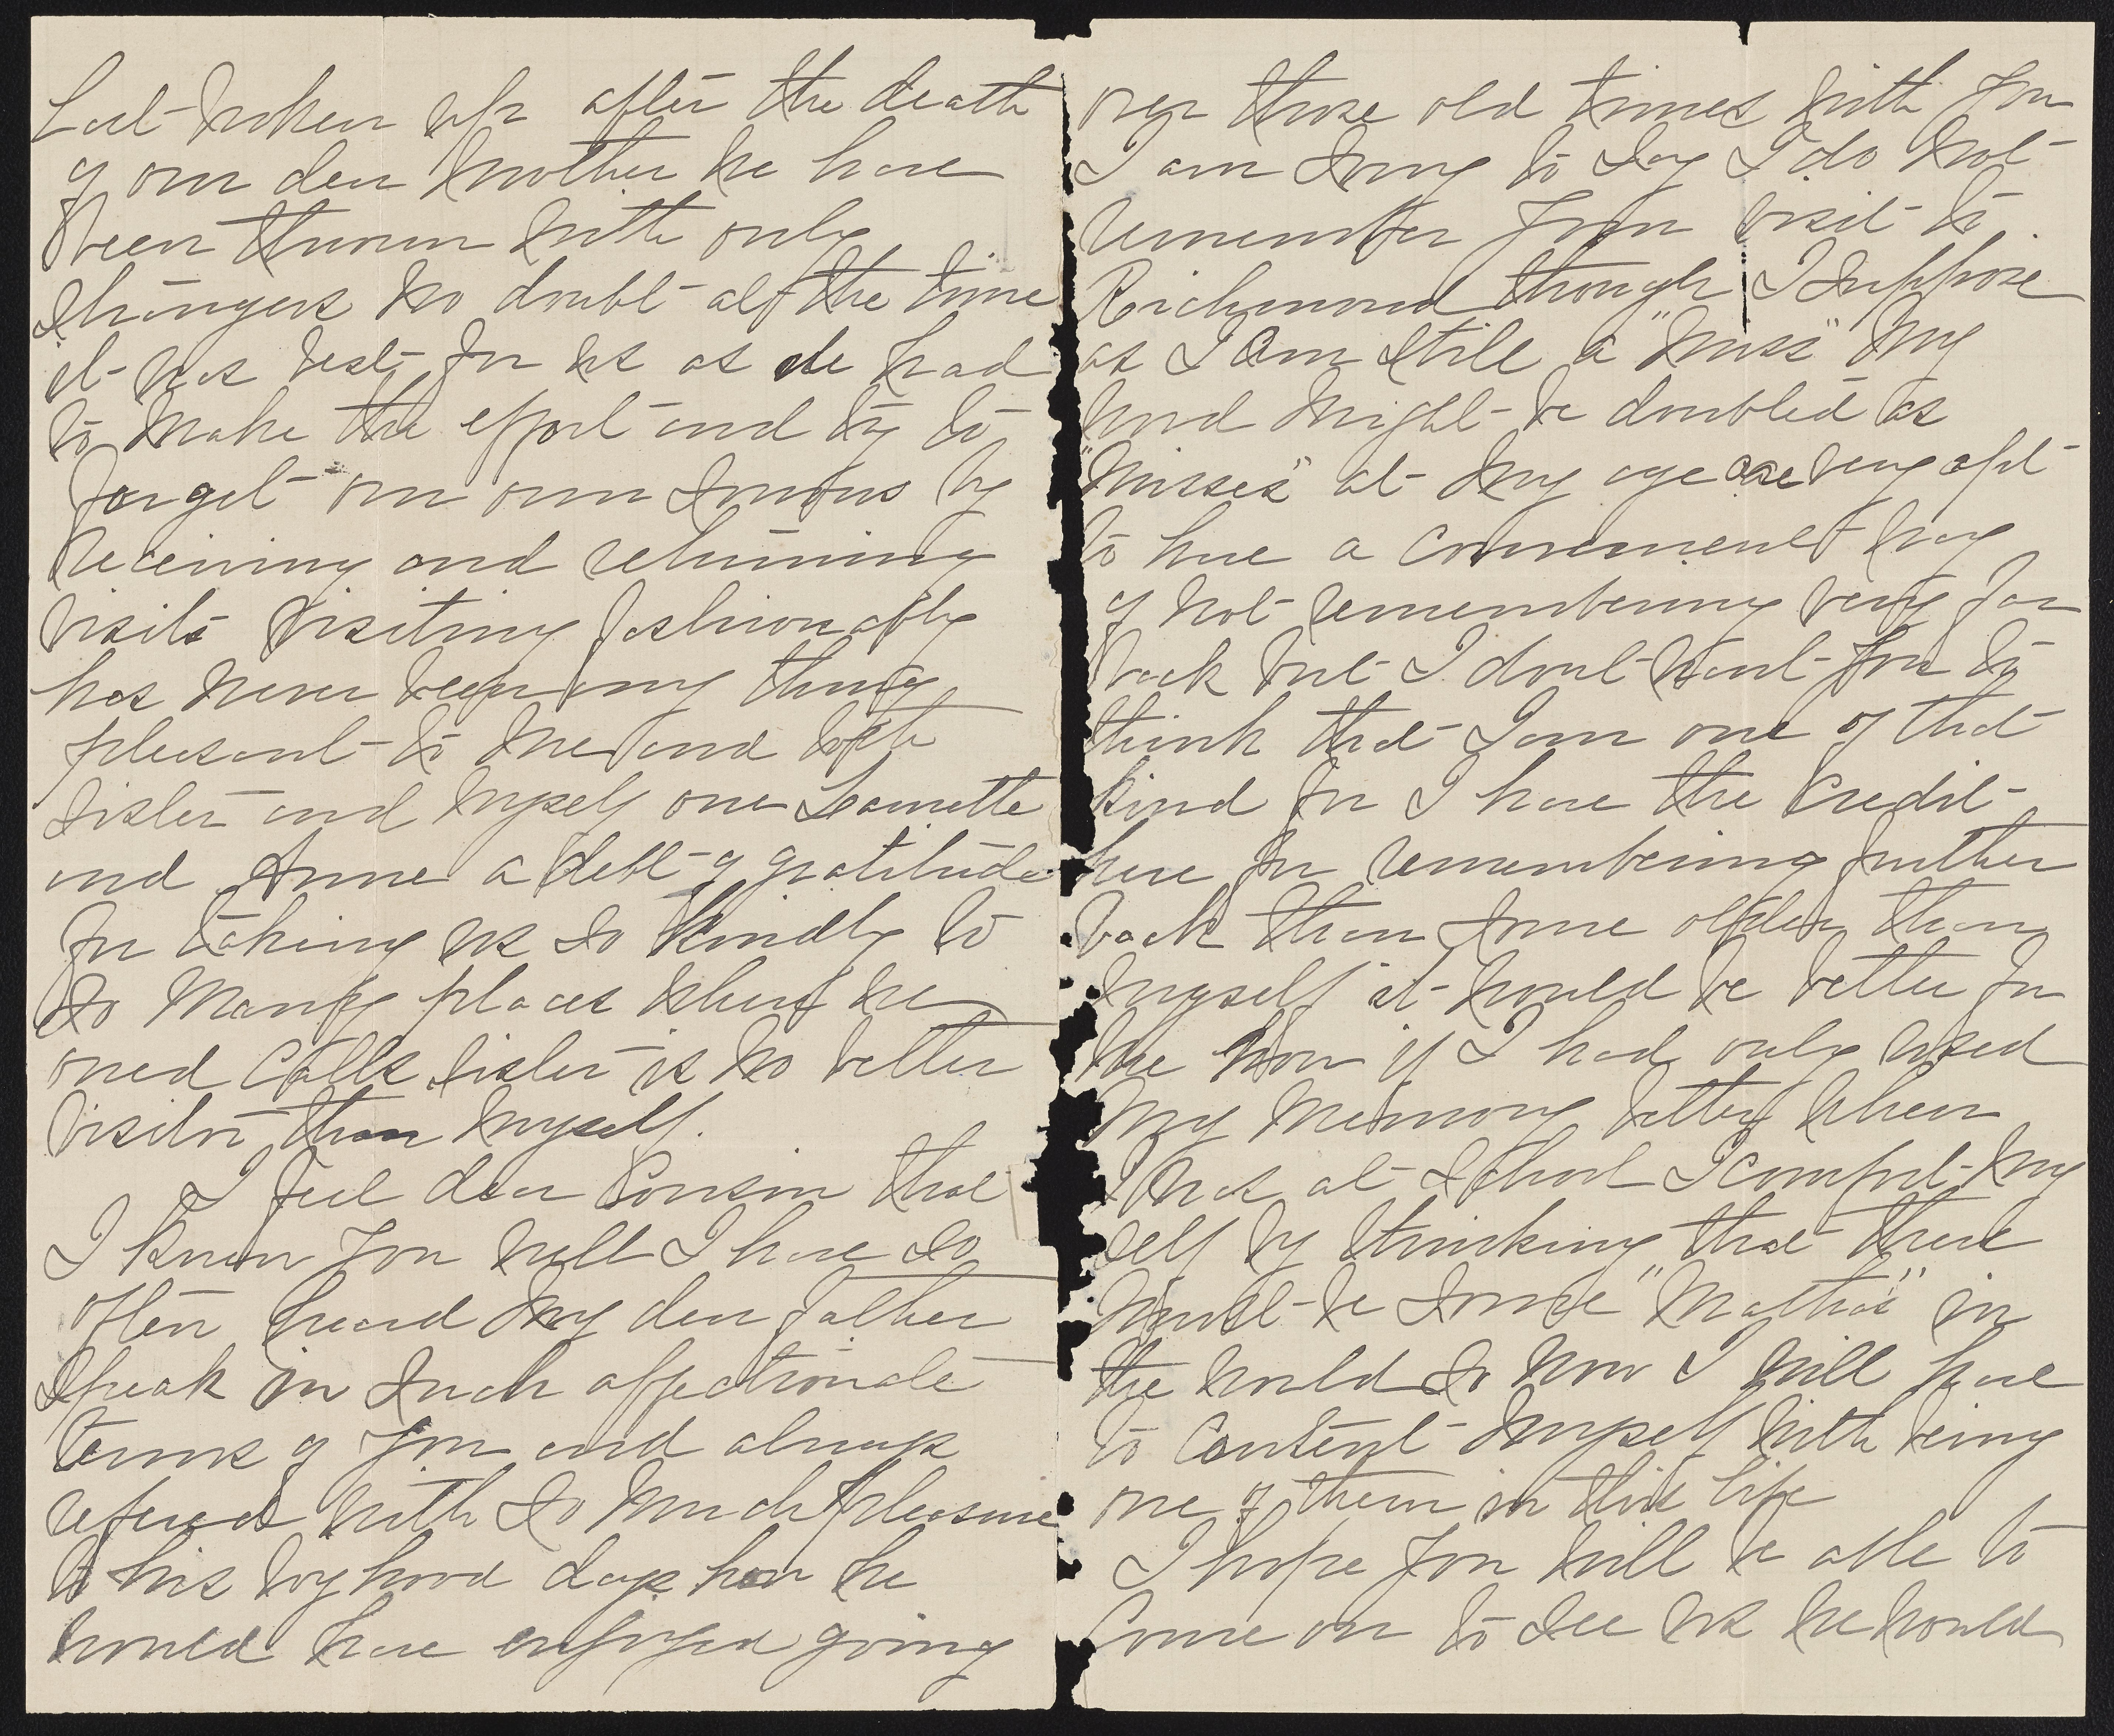 but broken up after the death
of our dear Mother we have
been thrown with only
strangers no doubt all the time
it was best for us as we had
to make the effort and try to
forget our own sorrows by
receiving and returning
visits visiting fashionably
has never been any thing
pleasant to me and both
sister and myself owe Leanette
and Anne a debt of gratitude
for taking us so kindly to
so many places where we
owed calls sister is no better
visitor than myself.
I feel dear Cousin that
I know you well I have so
often heard my dear father
speak in such affectionate
terms of you and always
refered with so much pleasure
to his boyhood days how he
would have enjoyed going
over those old times with you
I am sorry to say I do not
remember your visit to
Richmond though I suppose
as I am still a "Miss" my
word might be doubted as
"Misses" at my age are very apt
to have a convenient way
of not remembering very far
back but I dont want you to
think that I am one of that
kind for I have the credit
here for remembering further
back than some older than
myself it would be better for
me now if I had only used
my memory better when
I was at school I comfort my
self by thinking that there
must be some "Marthas" in
the world so now I will have
to content myself with being
one of them in this life
I hope you will be able to
Come on to see us we would